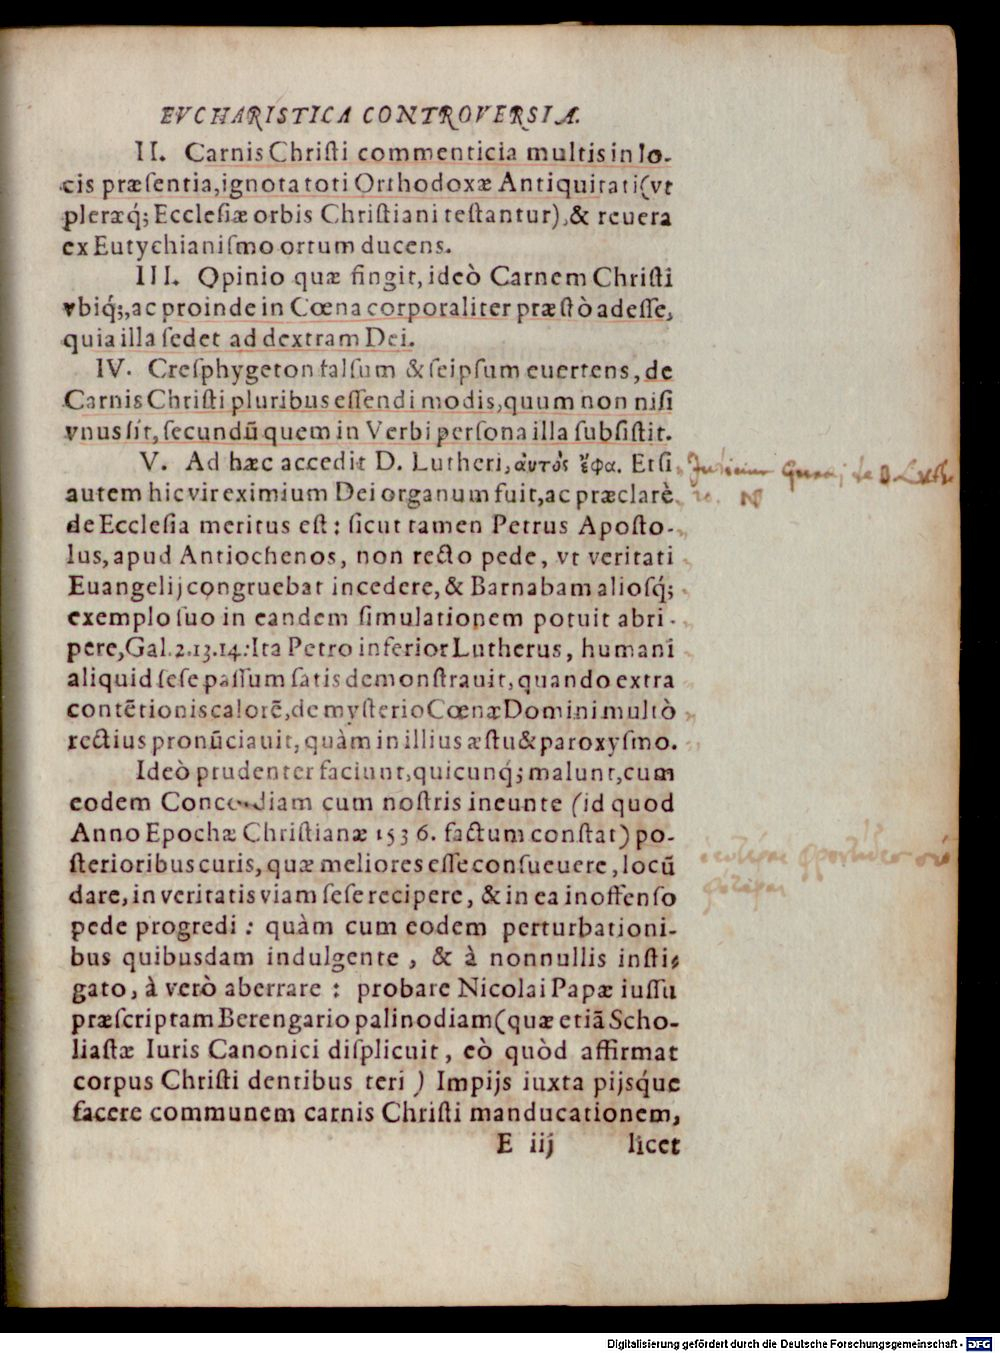 EVCHARISTICA CONTROVERSIA.
II. Carnis Chriſti commenticia multis in lo-
cis præſentia, ignota toti Orthodoxæ Antiquitati (vt
pleræq́; Eccleſiæ orbis Chriſtiani teſtantur), & reuera
ex Eutychianiſmo ortum ducens.
III. Opinio quæ fingit, ideò Carnem Chriſti
vbiq́;, ac proinde in Cœna corporaliter præſtò adeſſe,
quia illa ſedet ad dextram Dei.
IV. Creſphygeton falſum & ſeipſum euertens, de
Carnis Chriſti pluribus eſſendi modis, quum non niſi
vnus ſit, ſecundũ quem in Verbi perſona illa ſubſiſtit.
V. Ad hæc accedit D. Lutheri, αὐτὸς ἔφα. Etſi
autem hic vir eximium Dei organum fuit, ac præclarè
de Eccleſia meritus eſt: ſicut tamen Petrus Apoſto-
lus, apud Antiochenos, non recto pede, vt veritati
Euangelij congruebat incedere, & Barnabam alioſq́;
exemplo ſuo in eandem ſimulationem potuit abri-
pere, Gal. 2. 13. 14.: Ita Petro inferior Lutherus, humani
aliquid ſeſe paſſum ſatis demonſtrauit, quando extra
contẽtionis calorẽ, de myſterio Cœnæ Domini multò
rectius pronũciauit, quàm in illius æſtu & paroxyſmo.
Ideò prudenter faciunt, quicunq́; malunt, cum
eodem Concordiam cum noſtris ineunte (id quod
Anno Epochæ Chriſtianæ 1536. factum conſtat) po-
ſterioribus curis, quæ meliores eſſe conſueuere, locũ
dare, in veritatis viam ſeſe recipere, & in ea inoffenſo
pede progredi: quàm cum eodem perturbationi-
bus quibusdam indulgente, & à nonnullis inſti-
gato, à verò aberrare: probare Nicolai Papæ iuſſu
præſcriptam Berengario palinodiam (quæ etiã Scho-
liaſtæ Iuris Canonici diſplicuit, eò quòd affirmat
corpus Chriſti dentibus teri) Impijs iuxta pijsq́ue
facere communem carnis Chriſti manducationem,
E iij licet
Digitalisierung gefördert durch die Deutsche Forschungsgemeinschaft - DFG